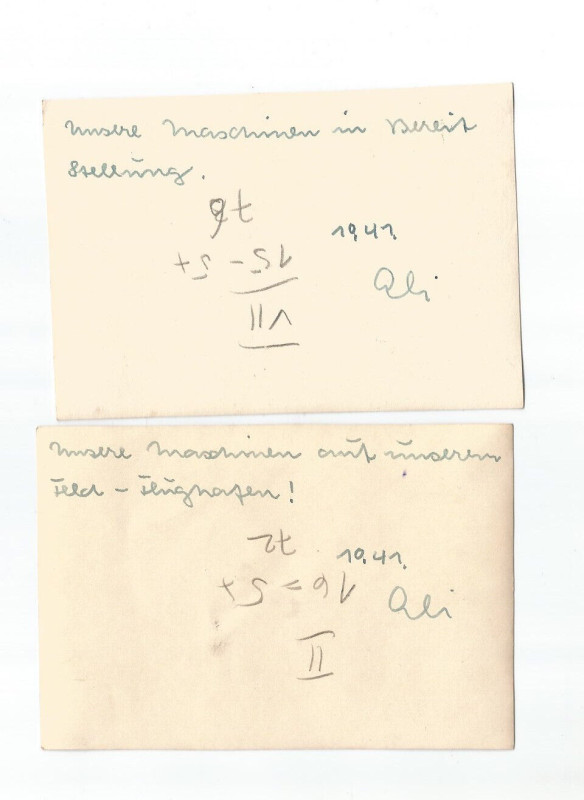 Unsere Maschinen in Bereit
Stellung.
1941.
Ali
VII
Unsere Maschinen auf unserem
Feld - Flughafen!
72
1941.
Ali
II